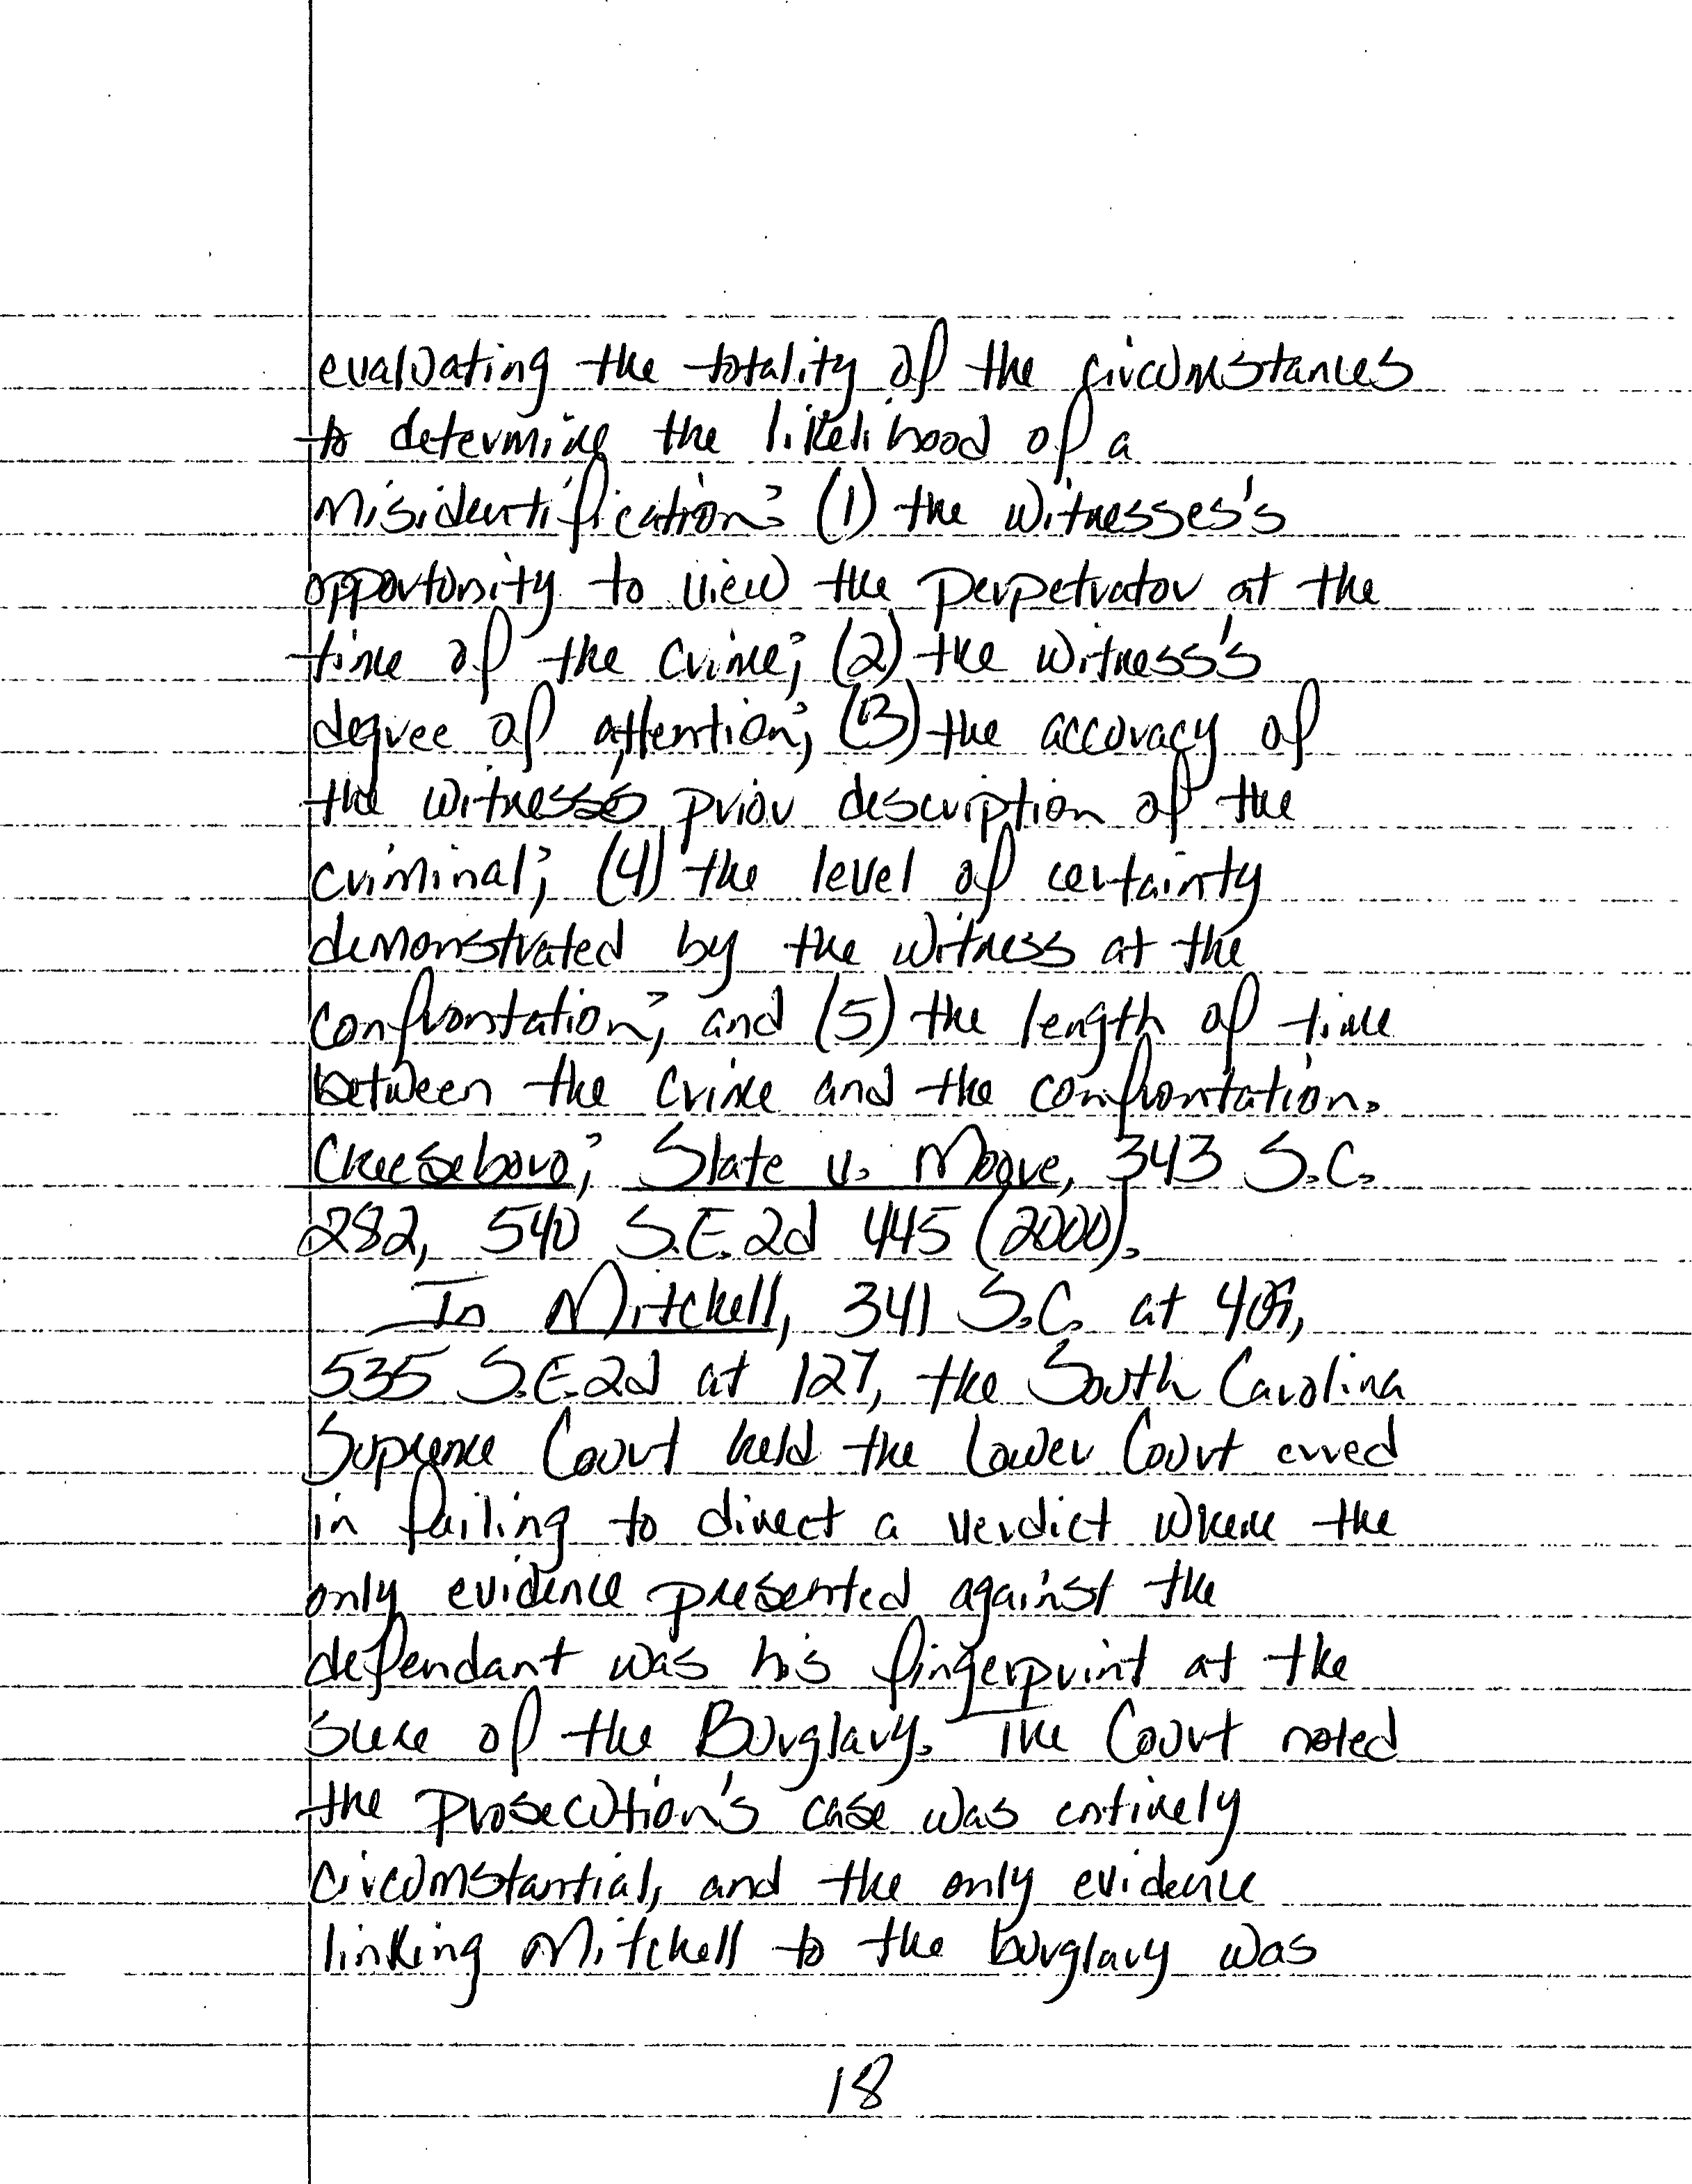 evaluating the totality of the circumstances
to determine the likelihood of a
misidentification: (1) the witnesses's
opportunity to view the perpetrator at the
time of the crime; (2) the witness's
degree of attention; (3) the accuracy of
the witness's prior description of the
criminal; (4) the level of certainty
demonstrated by the witness at the
confrontation; and (5) the length of time
between the crime and the confrontation.
Cheeseboro; State v. Moore, 343 S.C.
282, 540 S.E.2d 445 (2000).
In Mitchell, 341 S.C. at 409,
535 S.E.2d at 127, the South Carolina
Supreme Court held the Lower Court erred
in failing to direct a verdict where the
only evidence presented against the
defendant was his fingerprint at the
scene of the Burglary. The Court noted
the prosecution's case was entirely
circumstantial, and the only evidence
linking Mitchell to the burglary was
18